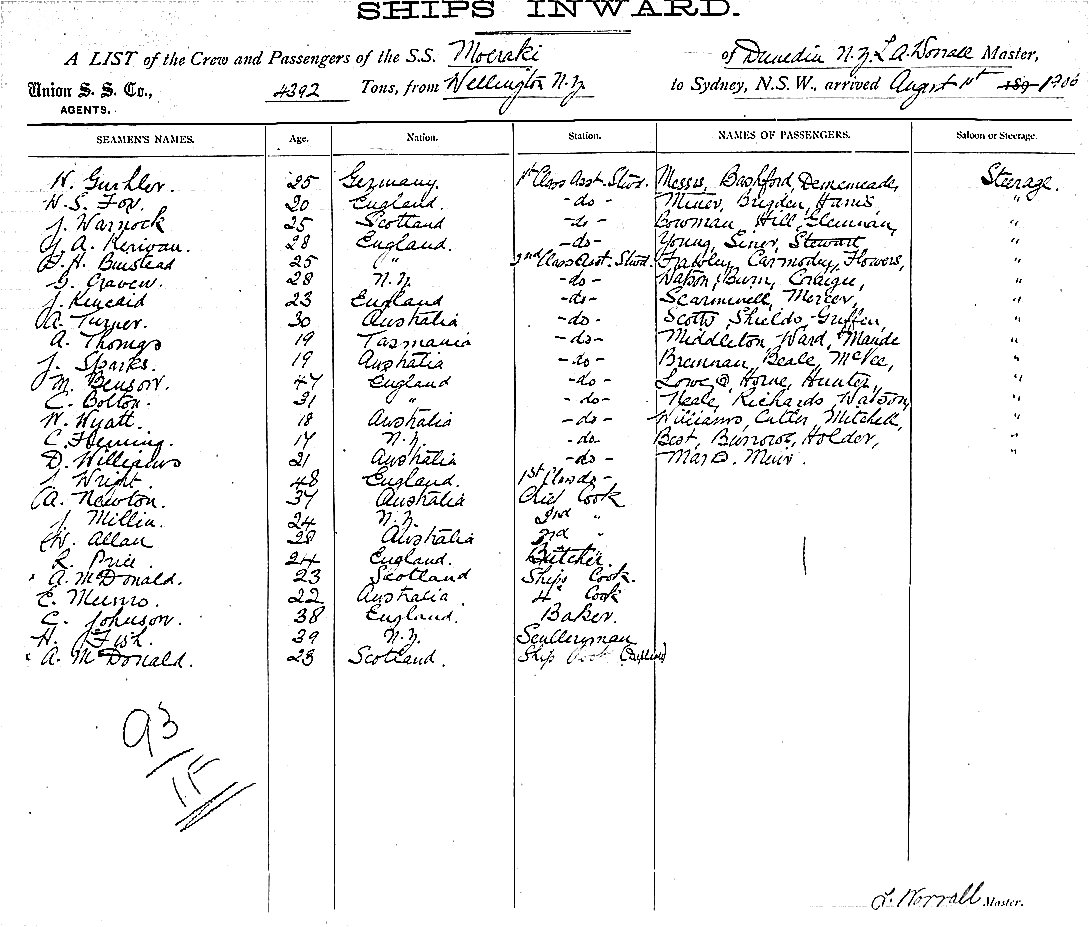 SHIPS INWARD.
A LIST of the Crew and Passengers of the S.S. Moeraki of Dunedin N.Z. Master,
Union S. S. Co., 4392 Tons, from Wellington N.Z. to Sydney, N.S.W., arrived August 1st 189
AGENTS.
SEAMEN'S NAMES. Age. Nation. Station. NAMES OF PASSENGERS. Saloon or Steerage.
25 Germany. 1st Class Asst. Stwd. Messrs, Bashford, Steerage.
W. S. Fox. 20 England. -do- Miner, Brigden, Harris "
J. Warnock 25 Scotland -do- Bowman, Hill, Glennan, "
28 England. -do- Young, Stewart "
25 " 2nd Class Asst. Stwd. Frawley, Carmody, Flowers, "
G. Craven. 28 N.Z. -do- Watson, Burn, Craigie, "
J. Kincaid 23 England -do- Mercer, "
A. Turner. 30 Australia -do- Scott, Shields "
A. Thomas 19 Tasmania -do- Middleton, Ward, Maude "
J. Sparks. 19 Australia -do- Brennan, Beale, McVee, "
M. Benson. 47 England -do- Horne, Hunter, "
C. Bolton. 31 " -do- Neale, Richards, Watson, "
W. Wyatt. 18 Australia -do- Williams, Cutler, Mitchell, "
C. Fleming. 17 N.Z. -do- Best, Burrows, Holder, "
D. Williams 21 Australia -do- Muir. "
J. Wright. 48 England. 1st
A. Newton. 37 Australia Chief Cook
J. Millin. 24 N.Z. 2nd "
W. Allan 28 Australia 3rd "
R. Price. 24 England. Butcher.
A. McDonald. 23 Scotland Ships Cook.
E. Munro. 22 Australia. 4th Cook
C. Johnson. 38 England. Baker.
H. Fish. 39 N.Z. Sculleryman
A. McDonald. 23 Scotland. Ship Cook
93
T. Worrall Master.